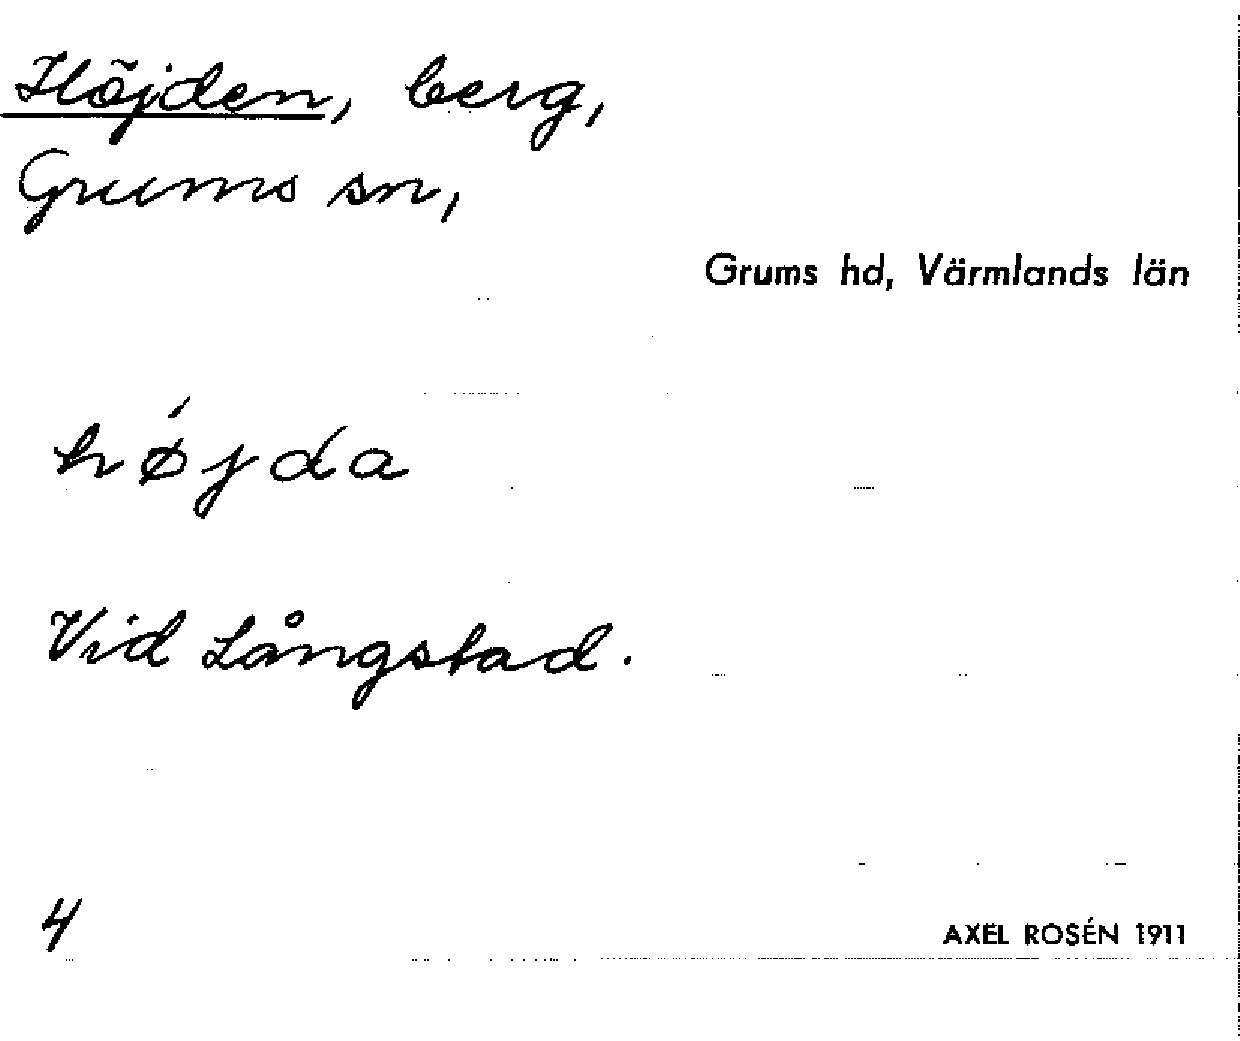 Höjden, berg,
Grums sn,
Grums hd, Värmlands län
hǿjda
Vid Långstad.
4
AXEL ROSÉN 1911